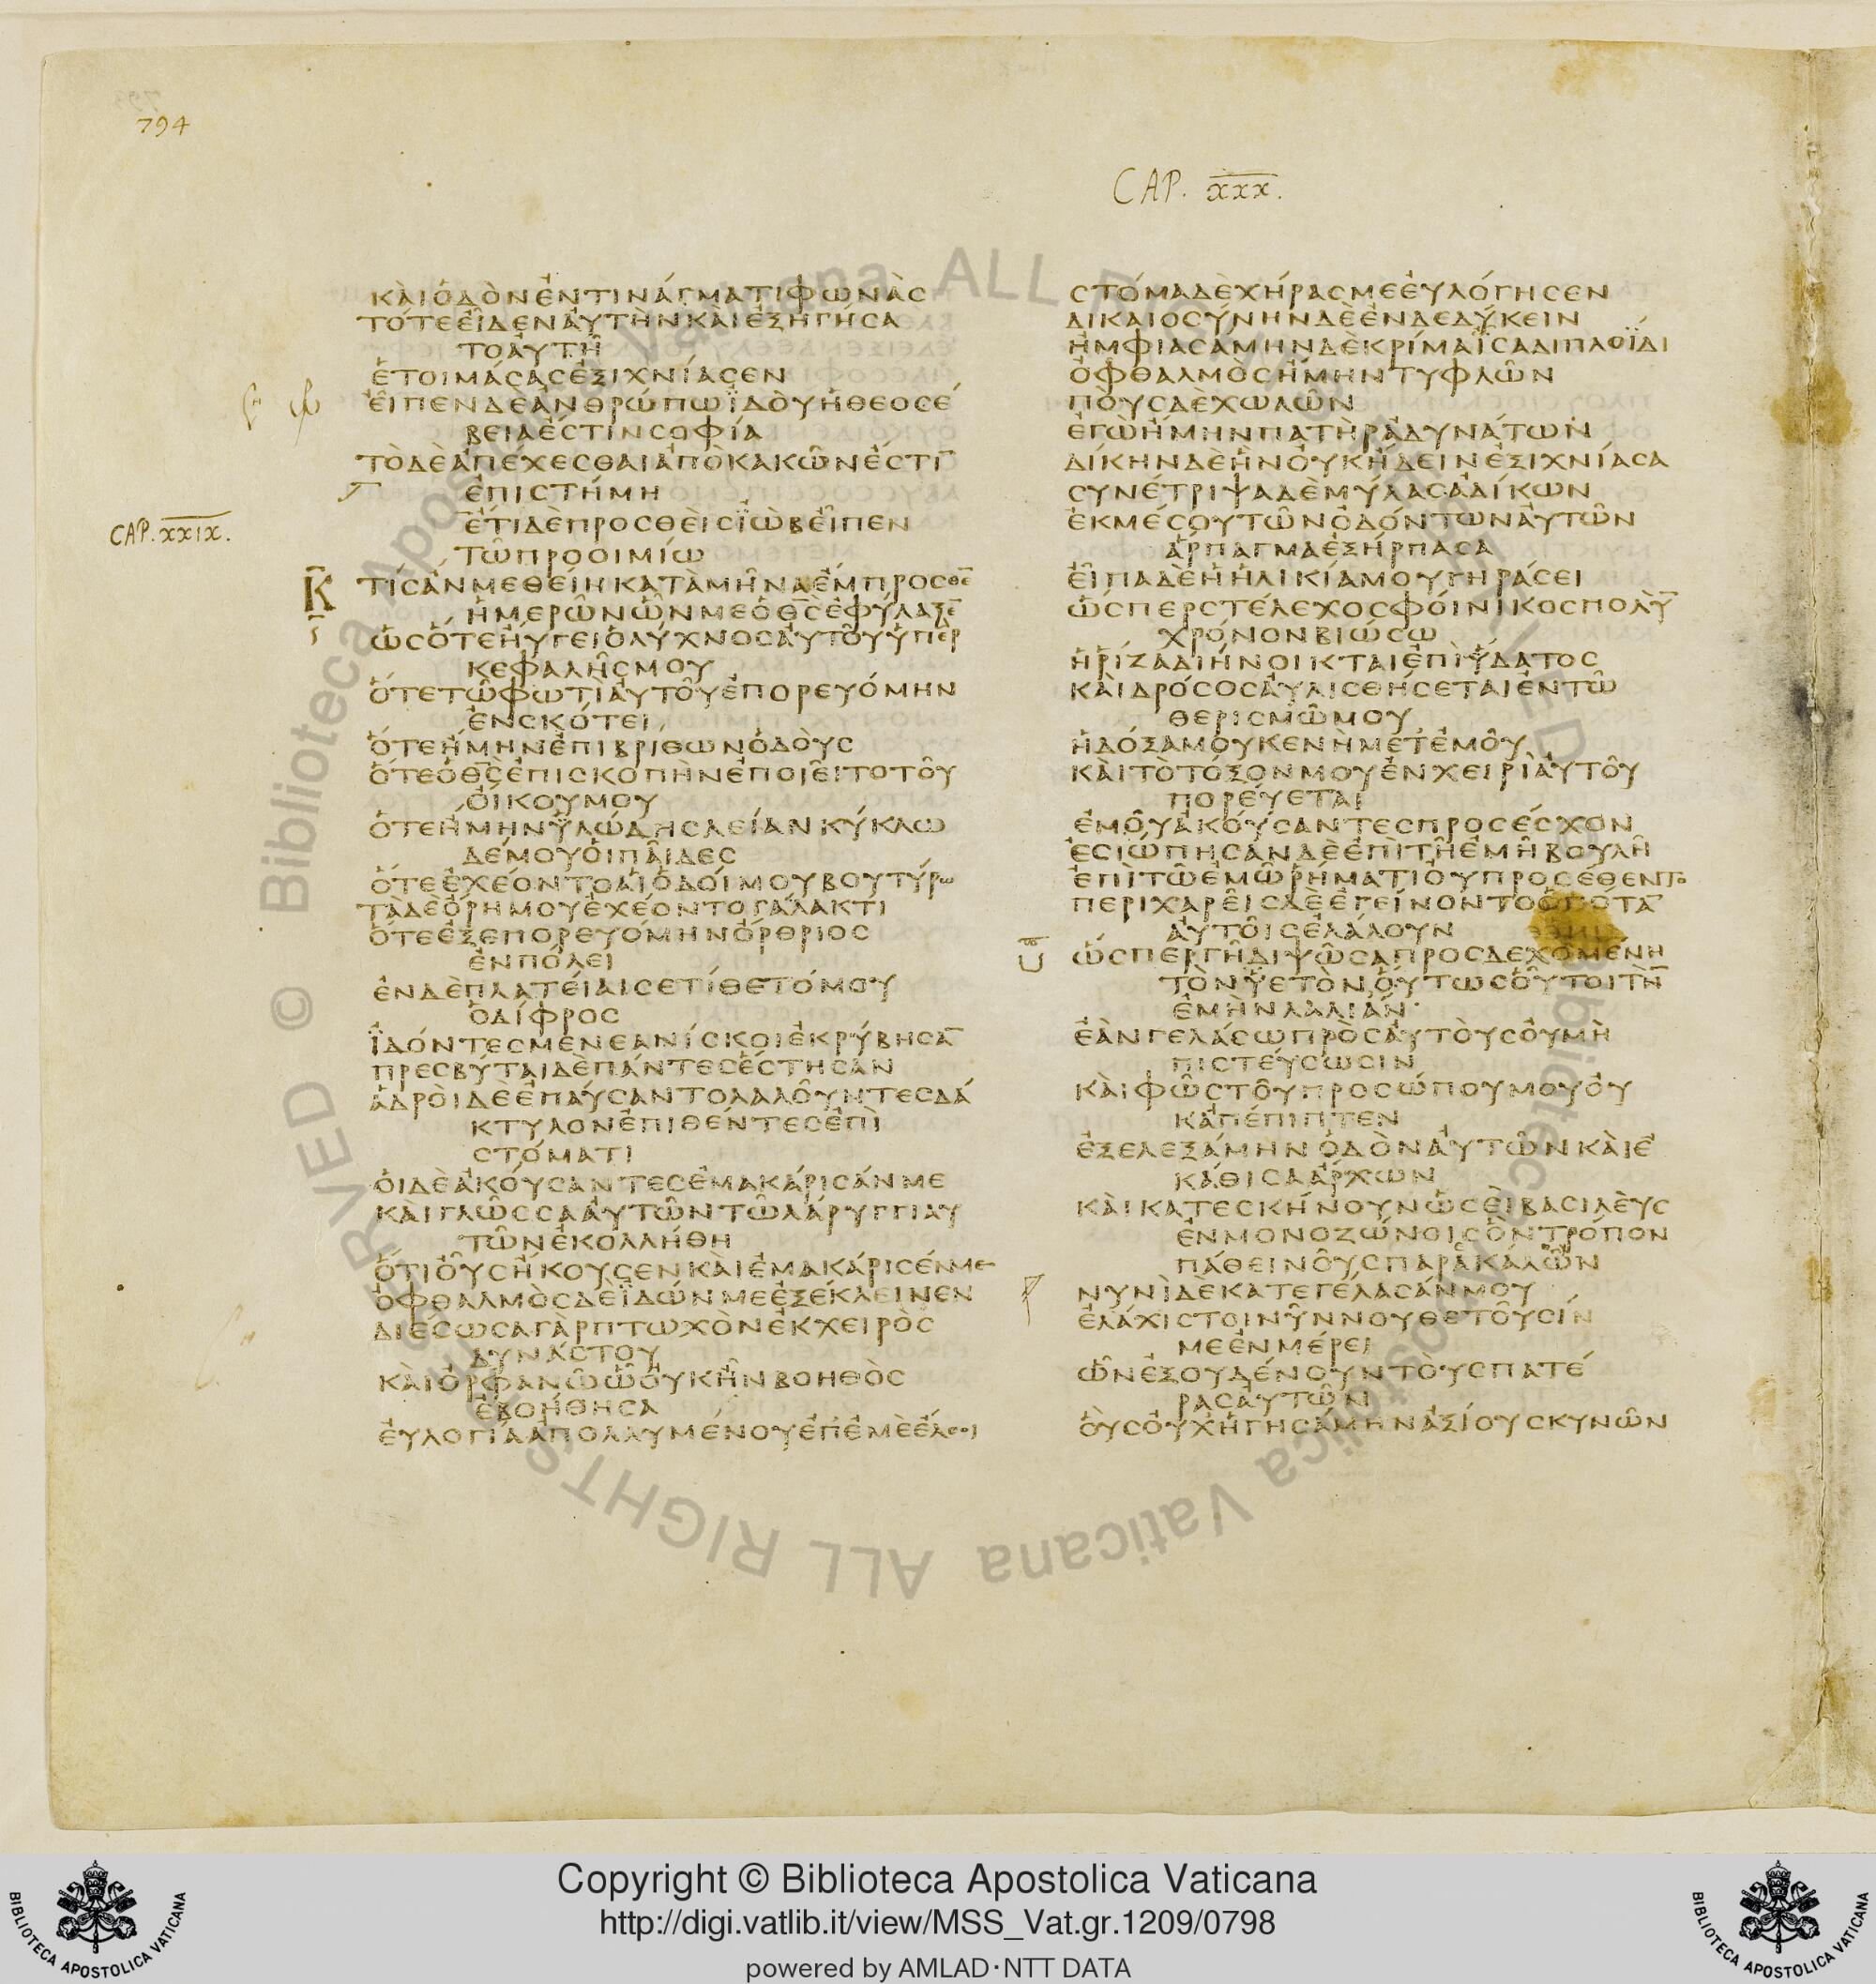 794
CAP. XXX.
ΚΑΙΟΔΟΝΕΝΤΙΝΑΓΜΑΤΙΦΩΝΑΣ
ΤΟΤΕΕΙΔΕΝΑΥΤΗΝΚΑΙΕΞΗΓΗΣΑ
ΤΟΑΥΤΗ
ΕΤΟΙΜΑΣΑΣΕΞΙΧΝΙΑΣΕΝ
ΕΙΠΕΝΔΕΑΝΘΡΩΠΩΪΔΟΥΗΘΕΟΣΕ
ΒΕΙΑΕΣΤΙΝΣΟΦΙΑ
ΤΟΔΕΑΠΕΧΕΣΘΑΙΑΠΟΚΑΚΩΝΕΣΤΙ̅
ΕΠΙΣΤΗΜΗ
CAP. XXIX.
ΕΤΙΔΕΠΡΟΣΘΕΙΣΪΩΒΕΙΠΕΝ
ΤΩΠΡΟΟΙΜΙΩ
Κ
ΤΙΣΑΝΜΕΘΕΙΗΚΑΤΑΜΗΝΑΕΜΠΡΟΣΘΕ̅
ΗΜΕΡΩΝΩΝΜΕΟΘ̅Σ̅ΕΦΥΛΑΞΕ̅
ΩΣΟΤΕΗΥΓΕΙΟΛΥΧΝΟΣΑΥΤΟΥΥΠΕΡ
ΚΕΦΑΛΗΣΜΟΥ
ΟΤΕΤΩΦΩΤΙΑΥΤΟΥΕΠΟΡΕΥΟΜΗΝ
ΕΝΣΚΟΤΕΙ
ΟΤΕΗΜΗΝΕΠΙΒΡΙΘΩΝΟΔΟΥΣ
ΟΤΕΟΘ̅Σ̅ΕΠΙΣΚΟΠΗΝΕΠΟΙΕΙΤΟΤΟΥ
ΟΙΚΟΥΜΟΥ
ΟΤΕΗΜΗΝΫΛΩΔΗΣΛΕΙΑΝΚΥΚΛΩ
ΔΕΜΟΥΟΙΠΑΙΔΕΣ
ΟΤΕΕΧΕΟΝΤΟΑΙΟΔΟΙΜΟΥΒΟΥΤΥΡΩ
ΤΑΔΕΟΡΗΜΟΥΕΧΕΟΝΤΟΓΑΛΑΚΤΙ
ΟΤΕΕΞΕΠΟΡΕΥΟΜΗΝΟΡΘΡΙΟΣ
ΕΝΠΟΛΕΙ
ΕΝΔΕΠΛΑΤΕΙΑΙΣΕΤΙΘΕΤΟΜΟΥ
ΟΔΙΦΡΟΣ
ΪΔΟΝΤΕΣΜΕΝΕΑΝΙΣΚΟΙΕΚΡΥΒΗΣΑ̅
ΠΡΕΣΒΥΤΑΙΔΕΠΑΝΤΕΣΕΣΤΗΣΑΝ
ΑΔΡΟΙΔΕΕΠΑΥΣΑΝΤΟΛΑΛΟΥΝΤΕΣΔΑ
ΚΤΥΛΟΝΕΠΙΘΕΝΤΕΣΕΠΙ
ΣΤΟΜΑΤΙ
ΟΙΔΕΑΚΟΥΣΑΝΤΕΣΕΜΑΚΑΡΙΣΑΝΜΕ
ΚΑΙΓΛΩΣΣΑΑΥΤΩΝΤΩΛΑΡΥΓΓΙΑΥ
ΤΩΝΕΚΟΛΛΗΘΗ
ΟΤΙΟΥΣΗΚΟΥΣΕΝΚΑΙΕΜΑΚΑΡΙΣΕΝΜΕ
ΟΦΘΑΛΜΟΣΔΕΪΔΩΝΜΕΕΞΕΚΛΕΙΝΕΝ
ΔΙΕΣΩΣΑΓΑΡΠΤΩΧΟΝΕΚΧΕΙΡΟΣ
ΔΥΝΑΣΤΟΥ
ΚΑΙΟΡΦΑΝΩΩΟΥΚΗΝΒΟΗΘΟΣ
ΕΒΟΗΘΗΣΑ
ΕΥΛΟΓΙΑΑΠΟΛΛΥΜΕΝΟΥΕΠΕΜΕΕΛΘΟΙ
ΣΤΟΜΑΔΕΧΗΡΑΣΜΕΕΥΛΟΓΗΣΕΝ
ΔΙΚΑΙΟΣΥΝΗΝΔΕΕΝΔΕΔΥΚΕΙΝ
ΗΜΦΙΑΣΑΜΗΝΔΕΚΡΙΜΑΪΣΑΔΙΠΛΟΪΔΙ
ΟΦΘΑΛΜΟΣΗΜΗΝΤΥΦΛΩΝ
ΠΟΥΣΔΕΧΩΛΩΝ
ΕΓΩΗΜΗΝΠΑΤΗΡΑΔΥΝΑΤΩΝ
ΔΙΚΗΝΔΕΗΝΟΥΚΗΔΕΙΝΕΞΙΧΝΙΑΣΑ
ΣΥΝΕΤΡΙΨΑΔΕΜΥΛΑΣΑΔΙΚΩΝ
ΕΚΜΕΣΟΥΤΩΝΟΔΟΝΤΩΝΑΥΤΩΝ
ΑΡΠΑΓΜΑΕΞΗΡΠΑΣΑ
ΕΙΠΑΔΕΗΗΛΙΚΙΑΜΟΥΓΗΡΑΣΕΙ
ΩΣΠΕΡΣΤΕΛΕΧΟΣΦΟΙΝΙΚΟΣΠΟΛΥ̅
ΧΡΟΝΟΝΒΙΩΣΩ
ΗΡΙΖΑΔΙΗΝΟΙΚΤΑΙΕΠΙΥΔΑΤΟΣ
ΚΑΙΔΡΟΣΟΣΑΥΛΙΣΘΗΣΕΤΑΙΕΝΤΩ
ΘΕΡΙΣΜΩΜΟΥ
ΗΔΟΞΑΜΟΥΚΕΝΗΜΕΤΕΜΟΥ
ΚΑΙΤΟΤΟΞΟΝΜΟΥΕΝΧΕΙΡΙΑΥΤΟΥ
ΠΟΡΕΥΕΤΑΙ
ΕΜΟΥΑΚΟΥΣΑΝΤΕΣΠΡΟΣΕΣΧΟΝ
ΕΣΙΩΠΗΣΑΝΔΕΕΠΙΤΗΕΜΗΒΟΥΛΗ
ΕΠΙΤΩΕΜΩΡΗΜΑΤΙΟΥΠΡΟΣΕΘΕΝΤΟ
ΠΕΡΙΧΑΡΕΙΣΔΕΕΓΕΙΝΟΝΤΟΟΠΟΤΑ̅
ΑΥΤΟΙΣΕΛΑΛΟΥΝ
ΩΣΠΕΡΓΗΔΙΨΩΣΑΠΡΟΣΔΕΧΟΜΕΝΗ
ΤΟΝΫΕΤΟΝΟΥΤΩΣΟΥΤΟΙΤΗ̅
ΕΜΗΝΛΑΛΙΑΝ
ΕΑΝΓΕΛΑΣΩΠΡΟΣΑΥΤΟΥΣΟΥΜΗ
ΠΙΣΤΕΥΣΩΣΙΝ
ΚΑΙΦΩΣΤΟΥΠΡΟΣΩΠΟΥΜΟΥΟΥ
ΚΑΠΕΠΙΠΤΕΝ
ΕΞΕΛΕΞΑΜΗΝΟΔΟΝΑΥΤΩΝΚΑΙΕ
ΚΑΘΙΣΑΑΡΧΩΝ
ΚΑΙΚΑΤΕΣΚΗΝΟΥΝΩΣΕΙΒΑΣΙΛΕΥΣ
ΕΝΜΟΝΟΖΩΝΟΙΣΟΝΤΡΟΠΟΝ
ΠΑΘΕΙΝΟΥΣΠΑΡΑΚΑΛΩΝ
ΝΥΝΙΔΕΚΑΤΕΓΕΛΑΣΑΝΜΟΥ
ΕΛΑΧΙΣΤΟΙΝΥΝΝΟΥΘΕΤΟΥΣΙΝ
ΜΕΕΝΜΕΡΕΙ
ΩΝΕΞΟΥΔΕΝΟΥΝΤΟΥΣΠΑΤΕ
ΡΑΣΑΥΤΩΝ
ΟΥΣΟΥΧΗΓΗΣΑΜΗΝΑΞΙΟΥΣΚΥΝΩΝ
© Biblioteca Apostolica Vaticana ALL RIGHTS RESERVED
BIBLIOTECA APOSTOLICA VATICANA
Copyright © Biblioteca Apostolica Vaticana
http://digi.vatlib.it/view/MSS_Vat.gr.1209/0798
powered by AMLAD·NTT DATA
BIBLIOTECA APOSTOLICA VATICANA